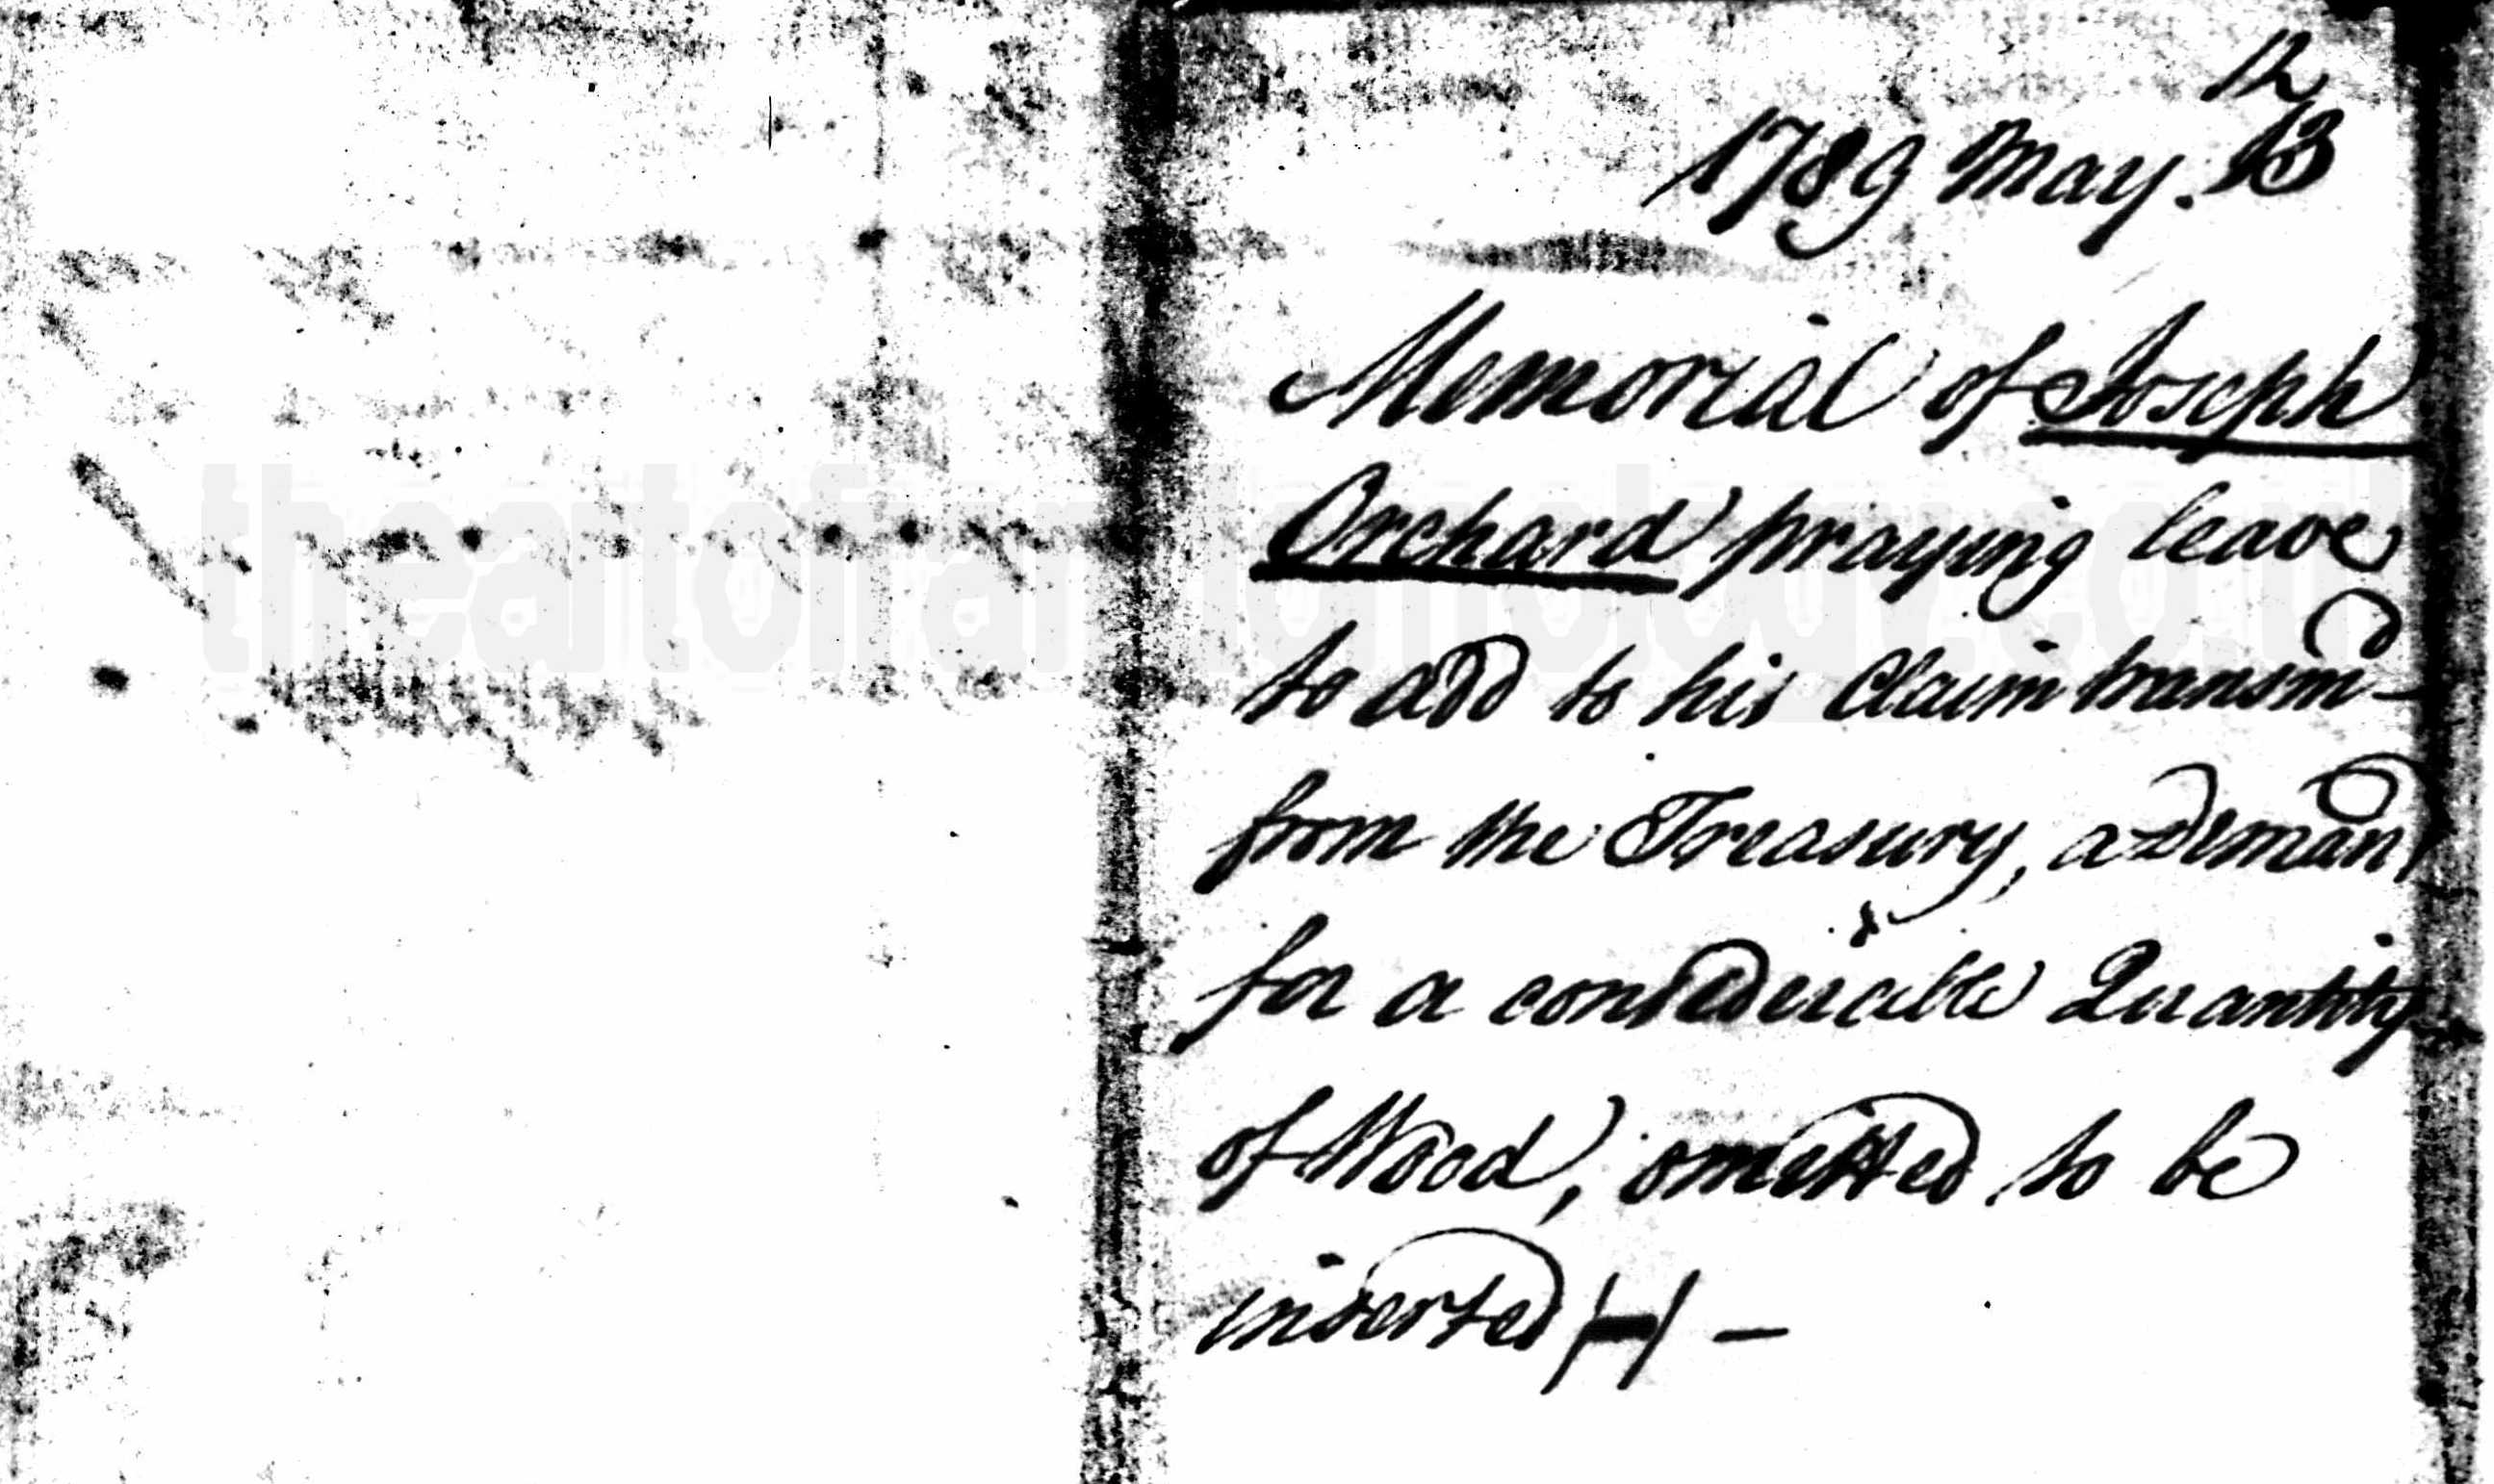 12
1789 May. 13
Memorial of Joseph
Orchard praying leave
to add to his Claim transm–d
from the Treasury, a deman
for a considerable Quantity
of Wood, omitted to be
inserted H –